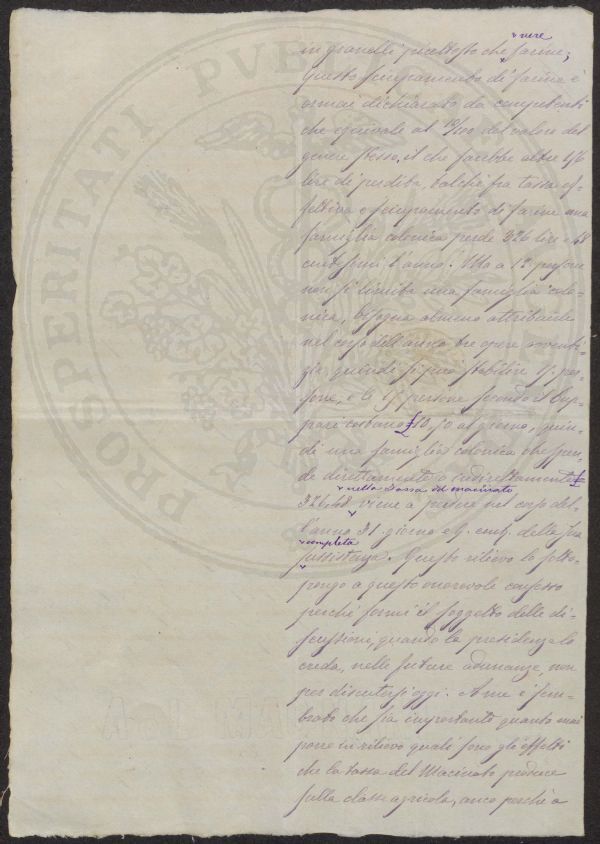 vere
in granelli piuttosto che farine;
Questo sciupamento di farina è
ormai dichiarato da competenti
che equivale al 10/100 del valore del
genere stesso, il che sarebbe altre 176
lire di perdita, talchè fra tassa ef-
fettiva e sciupamento di farine una
famiglia colonica perde 326 lire e 48
centesimi l'anno. Ma a 12 persone
non si limita una famiglia colo-
nica, bisogna almeno attribuirle
nel corso dell'anno tre opere avventi-
gie quindi si può stabilire 15 per-
sone, e le 15 persone secondo il Cup-
pari costano £ 10,50 al giorno, quin-
di una famiglia colonica che per-
de direttamente o indirettamente £
nella tassa del macinato
326.48 viene a perdere nel corso del-
l'anno 31 giorno e cent. della sua
completa
sussistenza. Questo rilievo lo sotto-
pongo a questo onorevole consesso
perchè formi il soggetto delle di-
scussioni, quando la presidenza lo
creda, nelle future adunanze, non
per discutersi oggi. A me è sem-
brato che sia importante quanto mai
porre in rilievo quali sono gli effetti
che la tassa del Macinato produce
sulla classe agricola, anco perchè a
PROSPERITATI PUBLICAE